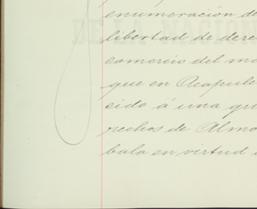 enumeración de
libertad de dere
comercio del ma
que en Acapulc
cido á una qu
rechos de Almo
bala en virtud